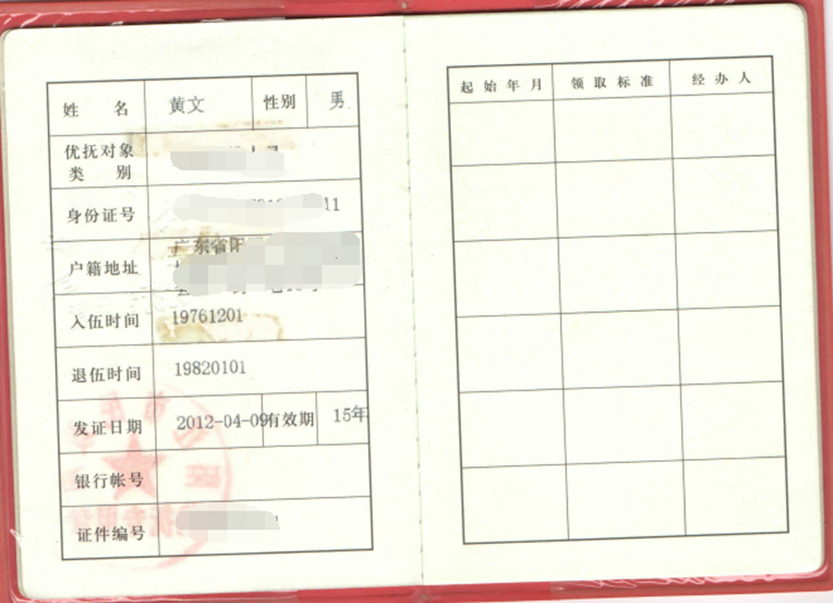 姓 名 黄文 性别 男
优抚对象
类 别
身份证号 11
户籍地址 广东省阳
入伍时间 19761201
退伍时间 19820101
发证日期 2012-04-09 有效期 15年
银行帐号
证件编号
起始年月 领取标准 经办人